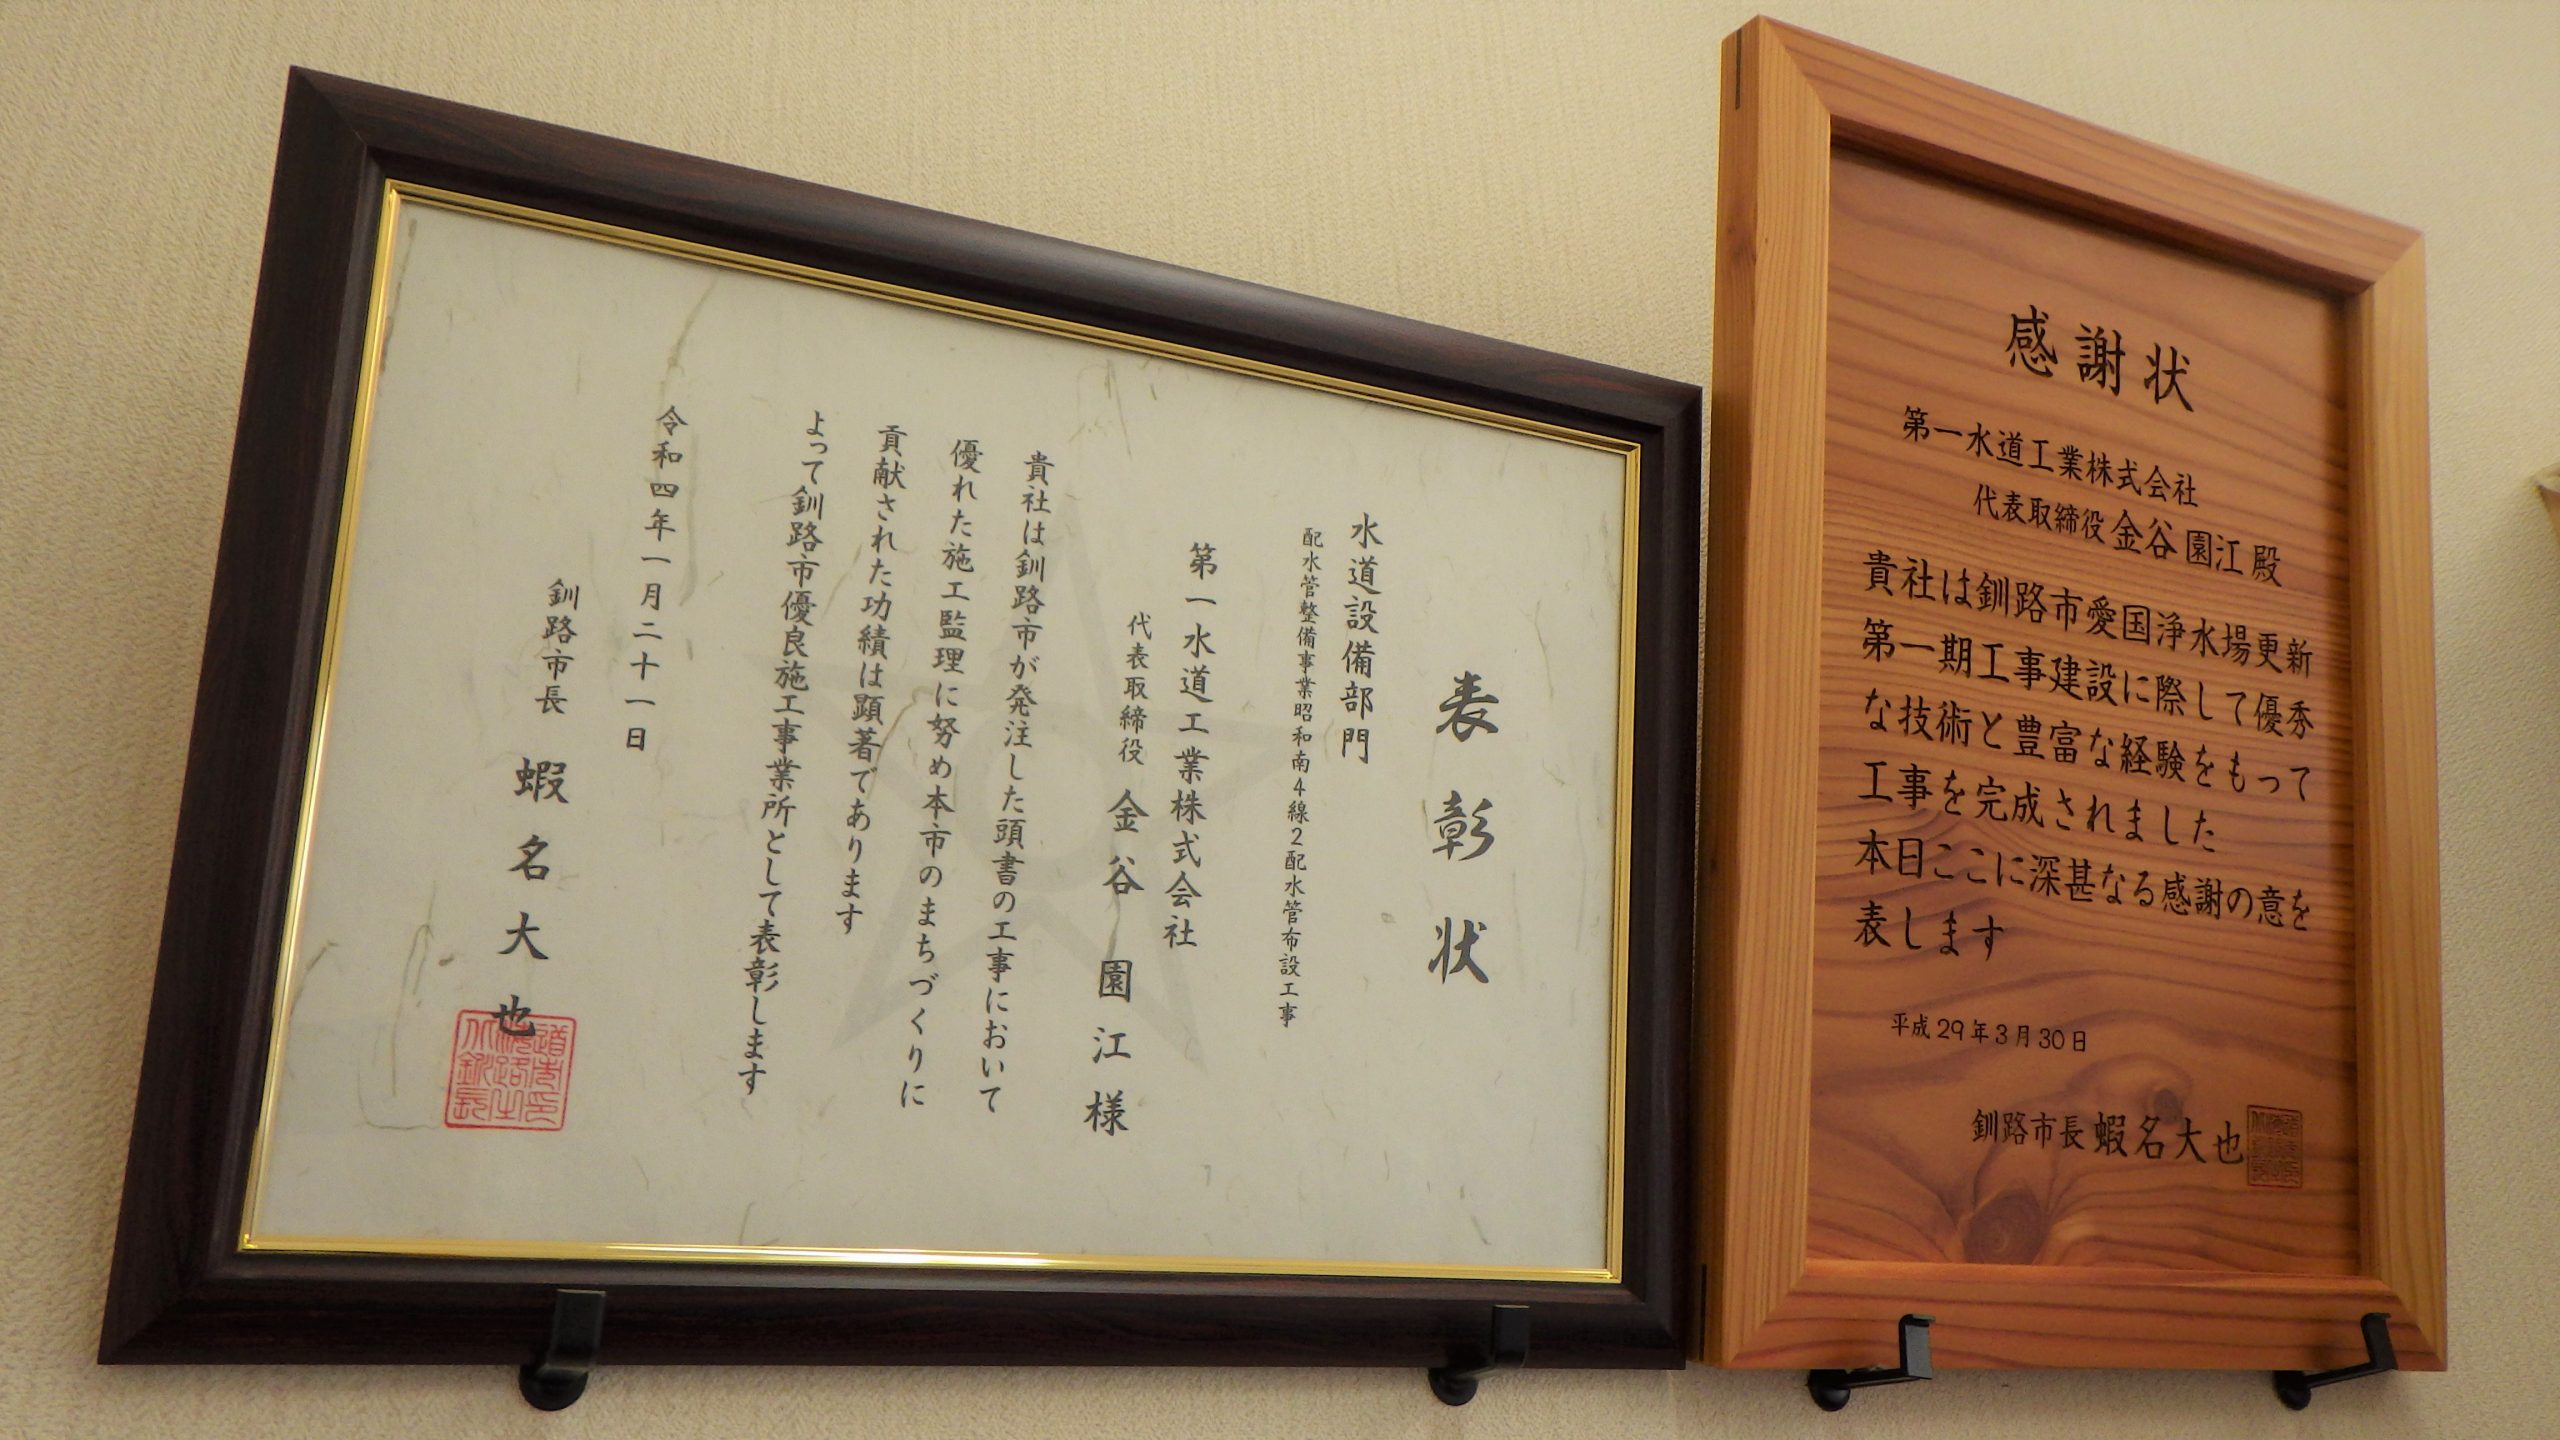 表彰状
水道設備部門
配水管整備事業昭和南4線2配水管布設工事
第一水道工業株式会社
代表取締役 金谷 園江 様
貴社は釧路市が発注した頭書の工事において
優れた施工監理に努め本市のまちづくりに
貢献された功績は顕著であります
よって釧路市優良施工事業所として表彰します
令和四年一月二十一日
釧路市長 蝦名大也
感謝状
第一水道工業株式会社
代表取締役 金谷 園江 殿
貴社は釧路市愛国浄水場更新
第一期工事建設に際して優秀
な技術と豊富な経験をもって
工事を完成されました
本日ここに深甚なる感謝の意を
表します
平成29年3月30日
釧路市長 蝦名大也